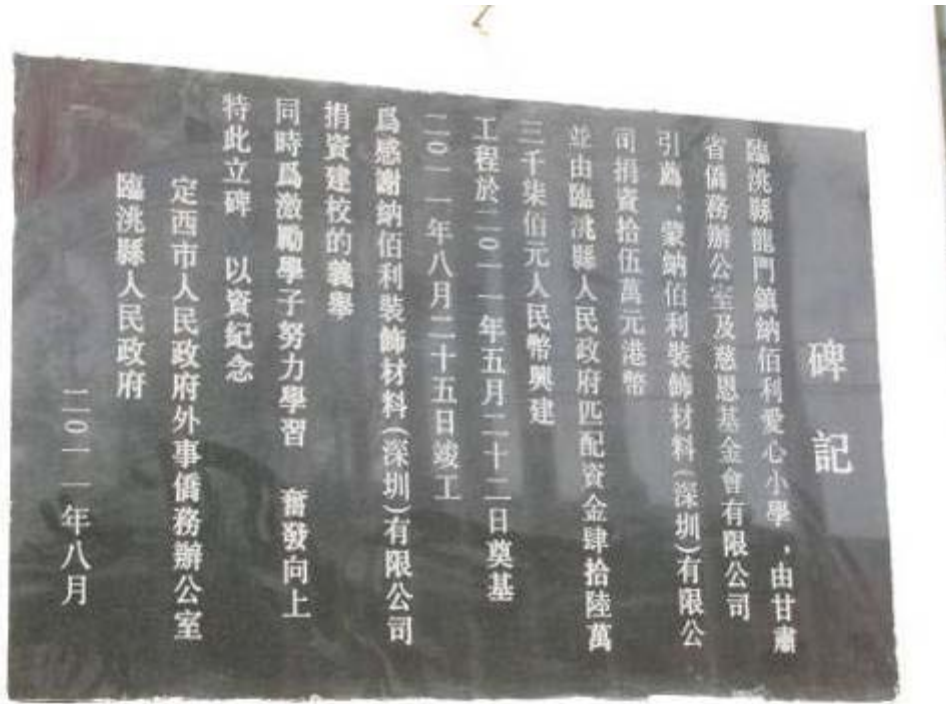 碑記
臨洮縣龍門鎮納佰利愛心小學，由甘肅
省僑務辦公室及慈恩基金會有限公司
引薦，蒙納佰利裝飾材料(深圳)有限公
司捐資拾伍萬元港幣
並由臨洮縣人民政府匹配資金肆拾陸萬
三千柒佰元人民幣興建
工程於二〇一一年五月二十二日奠基
二〇一一年八月二十五日竣工
爲感謝納佰利裝飾材料(深圳)有限公司
捐資建校的義舉
同時爲激勵學子努力學習 奮發向上
特此立碑 以資紀念
定西市人民政府外事僑務辦公室
臨洮縣人民政府
二〇一一年八月